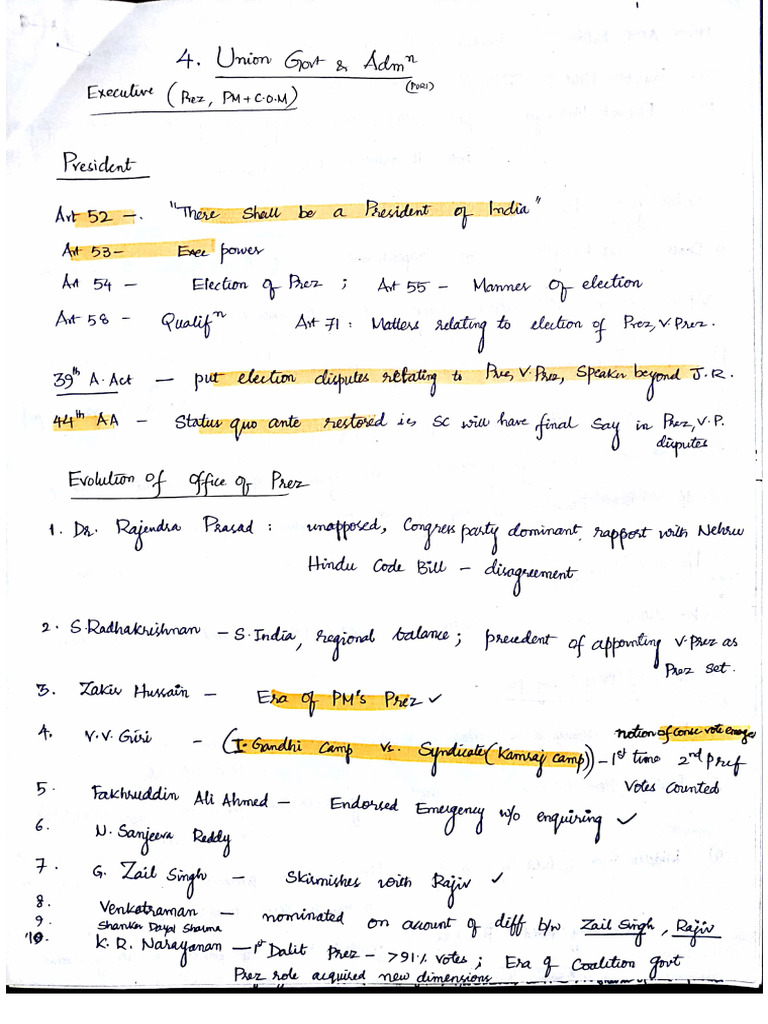 4. Union Govt & Admⁿ
(PURI)
Executive (Prez, PM + C.O.M)
President
Art 52 –. "There shall be a President of India"
Art 53 – Exec power
Art 54 – Election of Prez ; Art 55 – Manner of election
Art 58 – Qualifⁿ Art 71 : Matters relating to election of Prez, V. Prez.
39th A. Act – put election disputes relating to Pre, V. Prez, Speaker beyond J.R.
44th AA – Status quo ante restored ie SC will have final say in Prez, V.P.
disputes
Evolution of office of Prez
1. Dr. Rajendra Prasad : unapposed, Congress party dominant, rapport with Nehru
Hindu Code Bill – disagreement
2. S. Radhakrishnan – S. India, regional balance ; precedent of appointing V. Prez as
Prez set.
3. Zakir Hussain – Era of PM's Prez ✓
notion of consc vote emerge
4. V.V. Giri – (I. Gandhi Camp vs. Syndicate (Kamraj camp)) – 1st time 2nd pref
Votes Counted
5. Fakhruddin Ali Ahmed – Endorsed Emergency w/o enquiring ✓
6. N. Sanjeeva Reddy
7. G. Zail Singh – Skirmishes with Rajiv ✓
8. Venkatraman – nominated on account of diff b/w Zail Singh, Rajiv
9. Shanker Dayal Sharma
10. K. R. Narayanan – 1st Dalit Prez – >91% votes ; Era of Coalition govt
Prez role acquired new dimensions